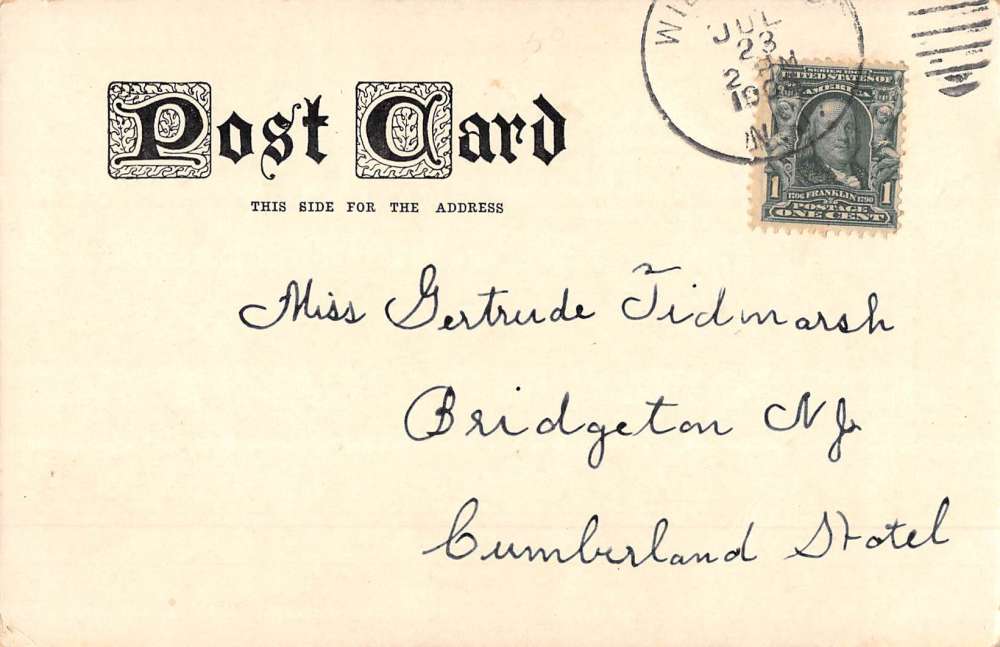 JUL
23
Post Card
THIS SIDE FOR THE ADDRESS
SERIES 1902
UNITED STATES OF
AMERICA
1 1706 FRANKLIN 1790 1
POSTAGE
ONE CENT
Miss Gertrude Tidmarsh
Bridgeton NJ
Cumberland Hotel